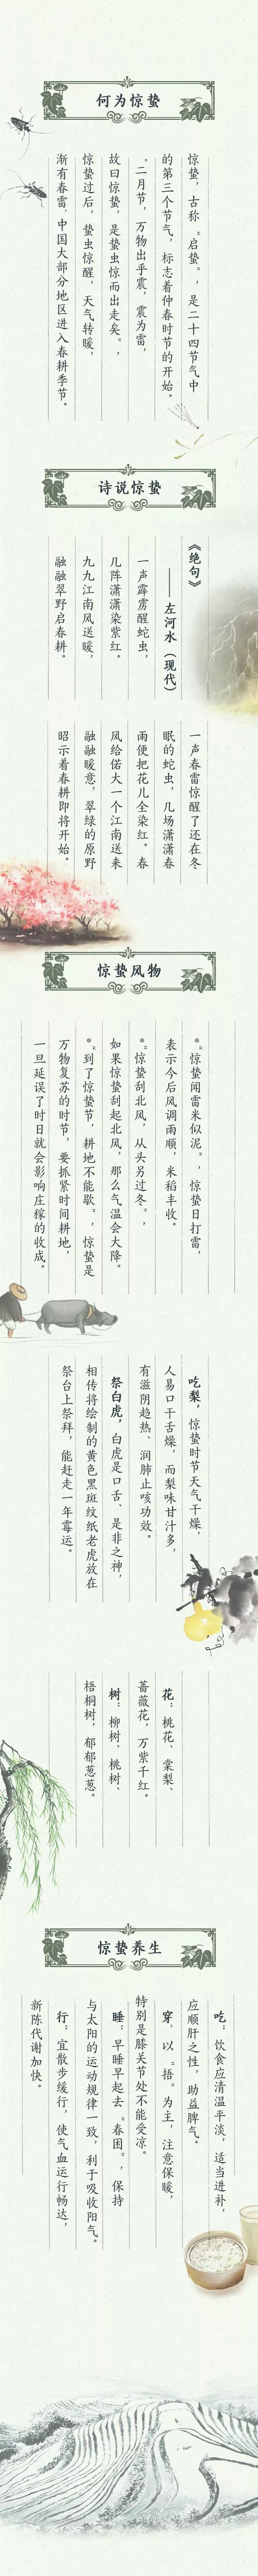 何为惊蛰
惊蛰，古称“启蛰”，是二十四节气中
的第三个节气，标志着仲春时节的开始。
“二月节，万物出乎震，震为雷，
故曰惊蛰，是蛰虫惊而出走矣。”，
惊蛰过后，蛰虫惊醒，天气转暖，
渐有春雷，中国大部分地区进入春耕季节。
诗说惊蛰
《绝句》
——左河水（现代）
一声霹雳醒蛇虫，
几阵潇潇染紫红。
九九江南风送暖，
融融翠野启春耕。
一声春雷惊醒了还在冬
眠的蛇虫，几场潇潇春
雨便把花儿全染红。春
风给偌大一个江南送来
融融暖意，翠绿的原野
昭示着春耕即将开始。
惊蛰风物
●“惊蛰闻雷米似泥。”，惊蛰日打雷，
表示今后风调雨顺，米稻丰收。
●“惊蛰刮北风，从头另过冬。”，
如果惊蛰刮起北风，那么气温会大降。
●“到了惊蛰节，耕地不能歇。”，惊蛰是
万物复苏的时节，要抓紧时间耕地，
一旦延误了时日就会影响庄稼的收成。
吃梨，惊蛰时节天气干燥，
人易口干舌燥，而梨味甘汁多，
有滋阴趋热、润肺止咳功效。
祭白虎，白虎是口舌、是非之神，
相传将绘制的黄色黑斑纹纸老虎放在
祭台上祭拜，能赶走一年霉运。
花：桃花、棠梨、
蔷薇花，万紫千红。
树：柳树、桃树、
梧桐树，郁郁葱葱。
惊蛰养生
吃：饮食应清温平淡，适当进补，
应顺肝之性，助益脾气。
穿：以“捂”为主，注意保暖，
特别是膝关节处不能受凉。
睡：早睡早起去“春困”，保持
与太阳的运动规律一致，利于吸收阳气。
行：宜散步缓行，使气血运行畅达，
新陈代谢加快。